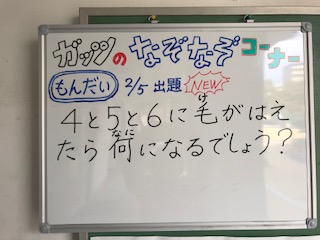 ガッツのなぞなぞコーナー
もんだい 2/5 出題 NEW
4と5と6に毛がはえ
け
たら何になるでしょう?
なに